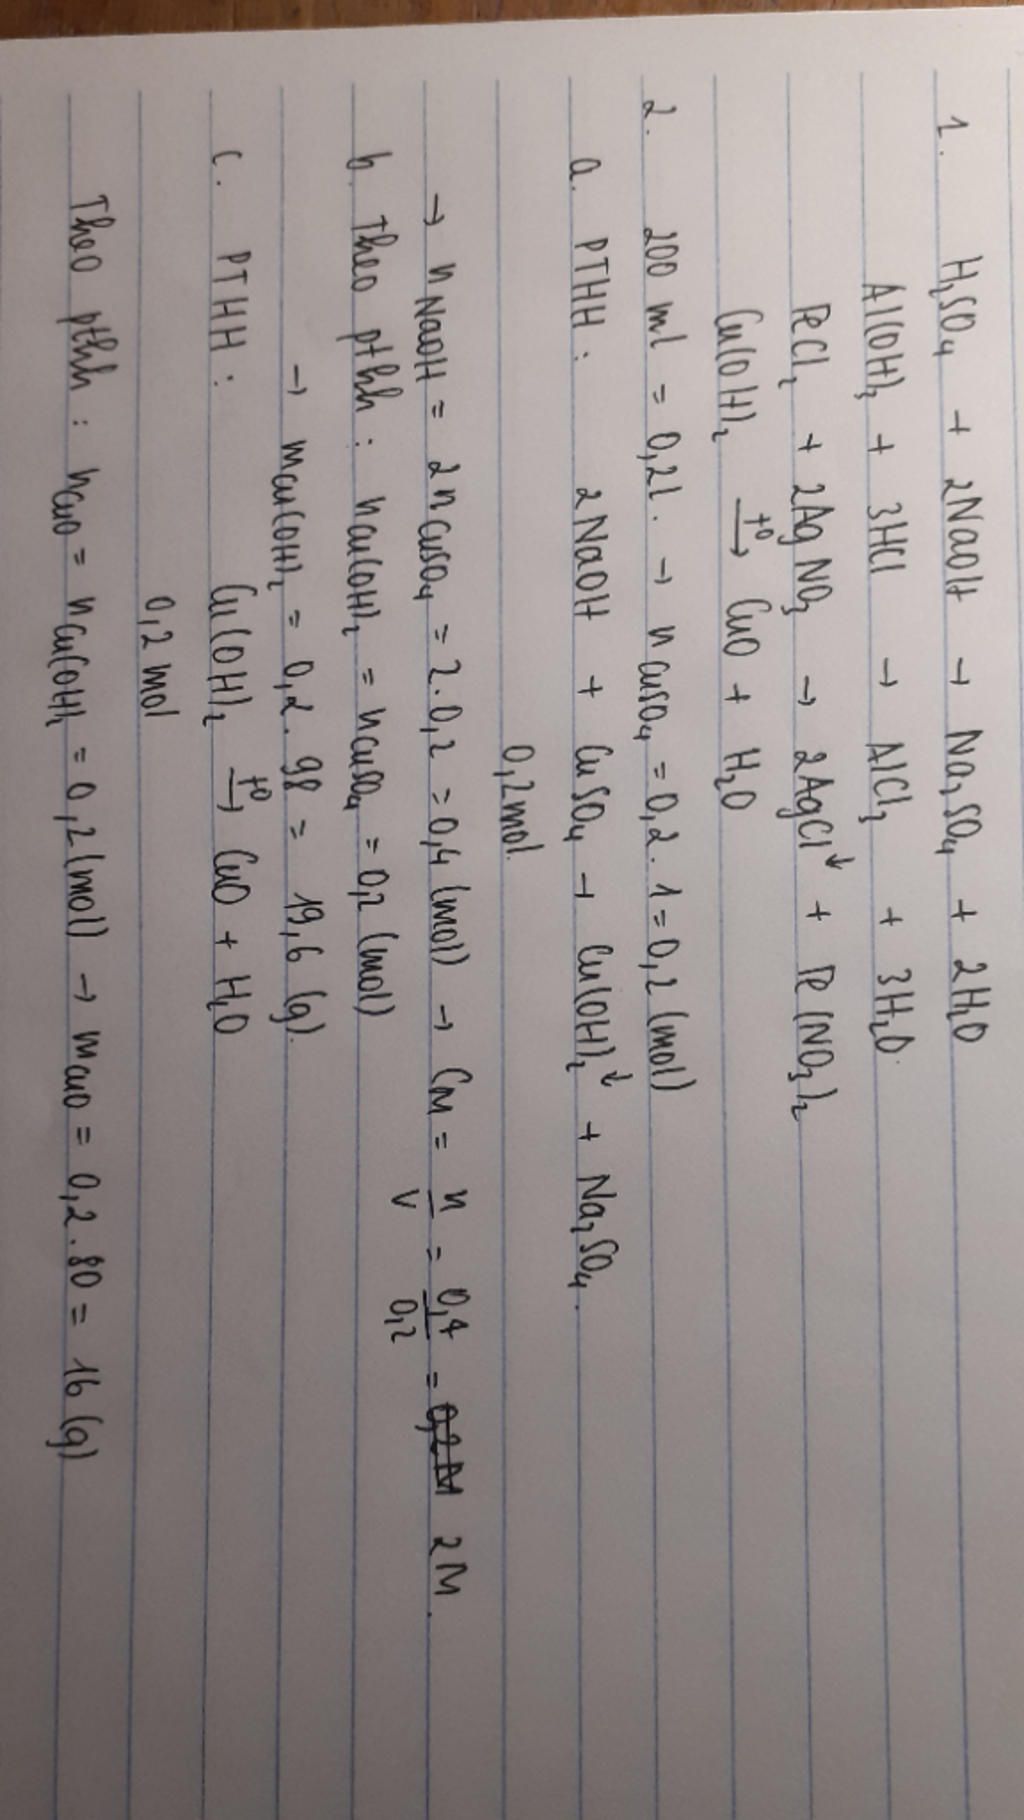 1. H₂SO₄ + 2NaOH → Na₂SO₄ + 2H₂O
Al(OH)₃ + 3HCl → AlCl₃ + 3H₂O.
FeCl₂ + 2AgNO₃ → 2AgCl↓ + Fe(NO₃)₂
Cu(OH)₂ →(t⁰) CuO + H₂O
2. 200 ml = 0,2l. → n CuSO₄ = 0,2. 1 = 0,2 (mol)
a. PTHH: 2NaOH + CuSO₄ → Cu(OH)₂↓ + Na₂SO₄.
0,2mol.
→ n NaOH = 2n CuSO₄ = 2. 0,2 = 0,4 (mol) → CM = n/V = 0,4/0,2 = 0,2M 2M.
b. Theo pthh: nCu(OH)₂ = nCuSO₄ = 0,2 (mol)
→ mCu(OH)₂ = 0,2. 98 = 19,6 (g).
c. PTHH: Cu(OH)₂ →(t⁰) CuO + H₂O
0,2 mol
Theo pthh: nCuO = nCu(OH)₂ = 0,2 (mol) → mCuO = 0,2. 80 = 16 (g)